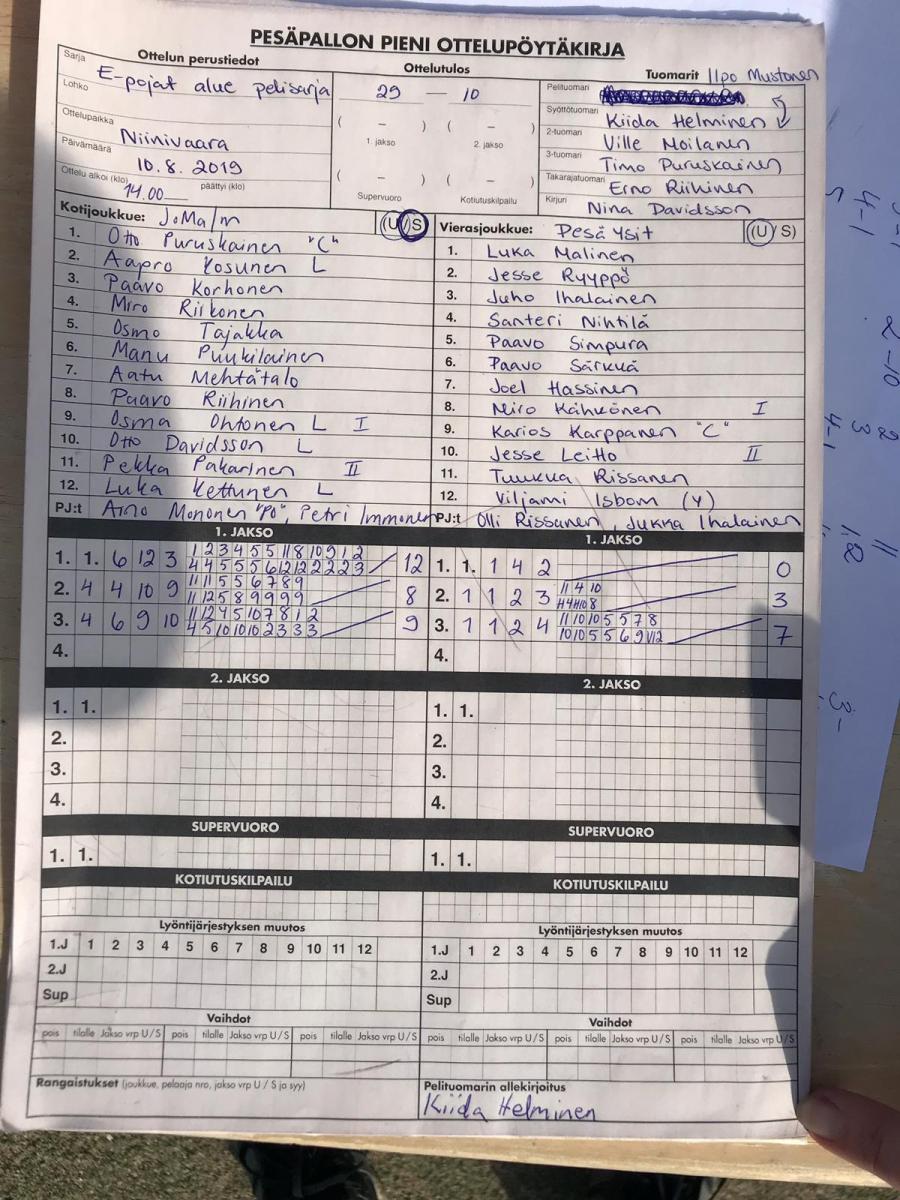 PESÄPALLON PIENI OTTELUPÖYTÄKIRJA
Ottelun perustiedot
Sarja E-pojat alue pelisarja
Lohko
Ottelupaikka Niinivaara
Päivämäärä 10.8.2019
Ottelu alkoi (klo) 14.00 päättyi (klo)
Ottelutulos
29 — 10
( – ) ( – )
1. jakso 2. jakso
( – ) ( – )
Supervuoro Kotiutuskilpailu
Tuomarit Ilpo Mustonen
Pelituomari
Syöttötuomari Kiida Helminen
2-tuomari Ville Moilanen
3-tuomari Timo Puruskainen
Takarajatuomari Erno Riihinen
Kirjuri Nina Davidsson
Kotijoukkue: JoMa/m (U/S)
1. Otto Puruskainen "C"
2. Aapro Kosunen L
3. Paavo Korhonen
4. Miro Riikonen
5. Osmo Tajakka
6. Manu Puukilainen
7. Aatu Mehtätalo
8. Paavo Riihinen
9. Osma Ohtonen L I
10. Otto Davidsson L
11. Pekka Pakarinen II
12. Luka Kettunen L
PJ:t Aino Mononen "PO", Petri Immonen
Vierasjoukkue: Pesä Ysit (U/S)
1. Luka Malinen
2. Jesse Ryyppö
3. Juho Ihalainen
4. Santeri Nihtilä
5. Paavo Simpura
6. Paavo Särkkä
7. Joel Hassinen
8. Niro Kähkönen I
9. Karios Karppanen "C"
10. Jesse Leitto II
11. Tuukka Rissanen
12. Viljami Isbom (Y)
PJ:t Olli Rissanen, Jukka Ihalainen
1. JAKSO
1. 1. 6 12 3 12
2. 4 4 10 9 8
3. 4 6 9 10 9
4.
1. JAKSO
1. 1. 1 4 2 0
2. 1 1 2 3 3
3. 1 1 2 4 7
4.
2. JAKSO
1. 1.
2.
3.
4.
2. JAKSO
1. 1.
2.
3.
4.
SUPERVUORO
1. 1.
SUPERVUORO
1. 1.
KOTIUTUSKILPAILU
KOTIUTUSKILPAILU
Lyöntijärjestyksen muutos
1.J 1 2 3 4 5 6 7 8 9 10 11 12
2.J
Sup
Lyöntijärjestyksen muutos
1.J 1 2 3 4 5 6 7 8 9 10 11 12
2.J
Sup
Vaihdot
pois tilalle Jakso vrp U/S pois tilalle Jakso vrp U/S pois tilalle Jakso vrp U/S
Vaihdot
pois tilalle Jakso vrp U/S pois tilalle Jakso vrp U/S pois tilalle Jakso vrp U/S
Rangaistukset (joukkue, pelaaja nro, jakso vrp U / S ja syy)
Pelituomarin allekirjoitus
Kiida Helminen